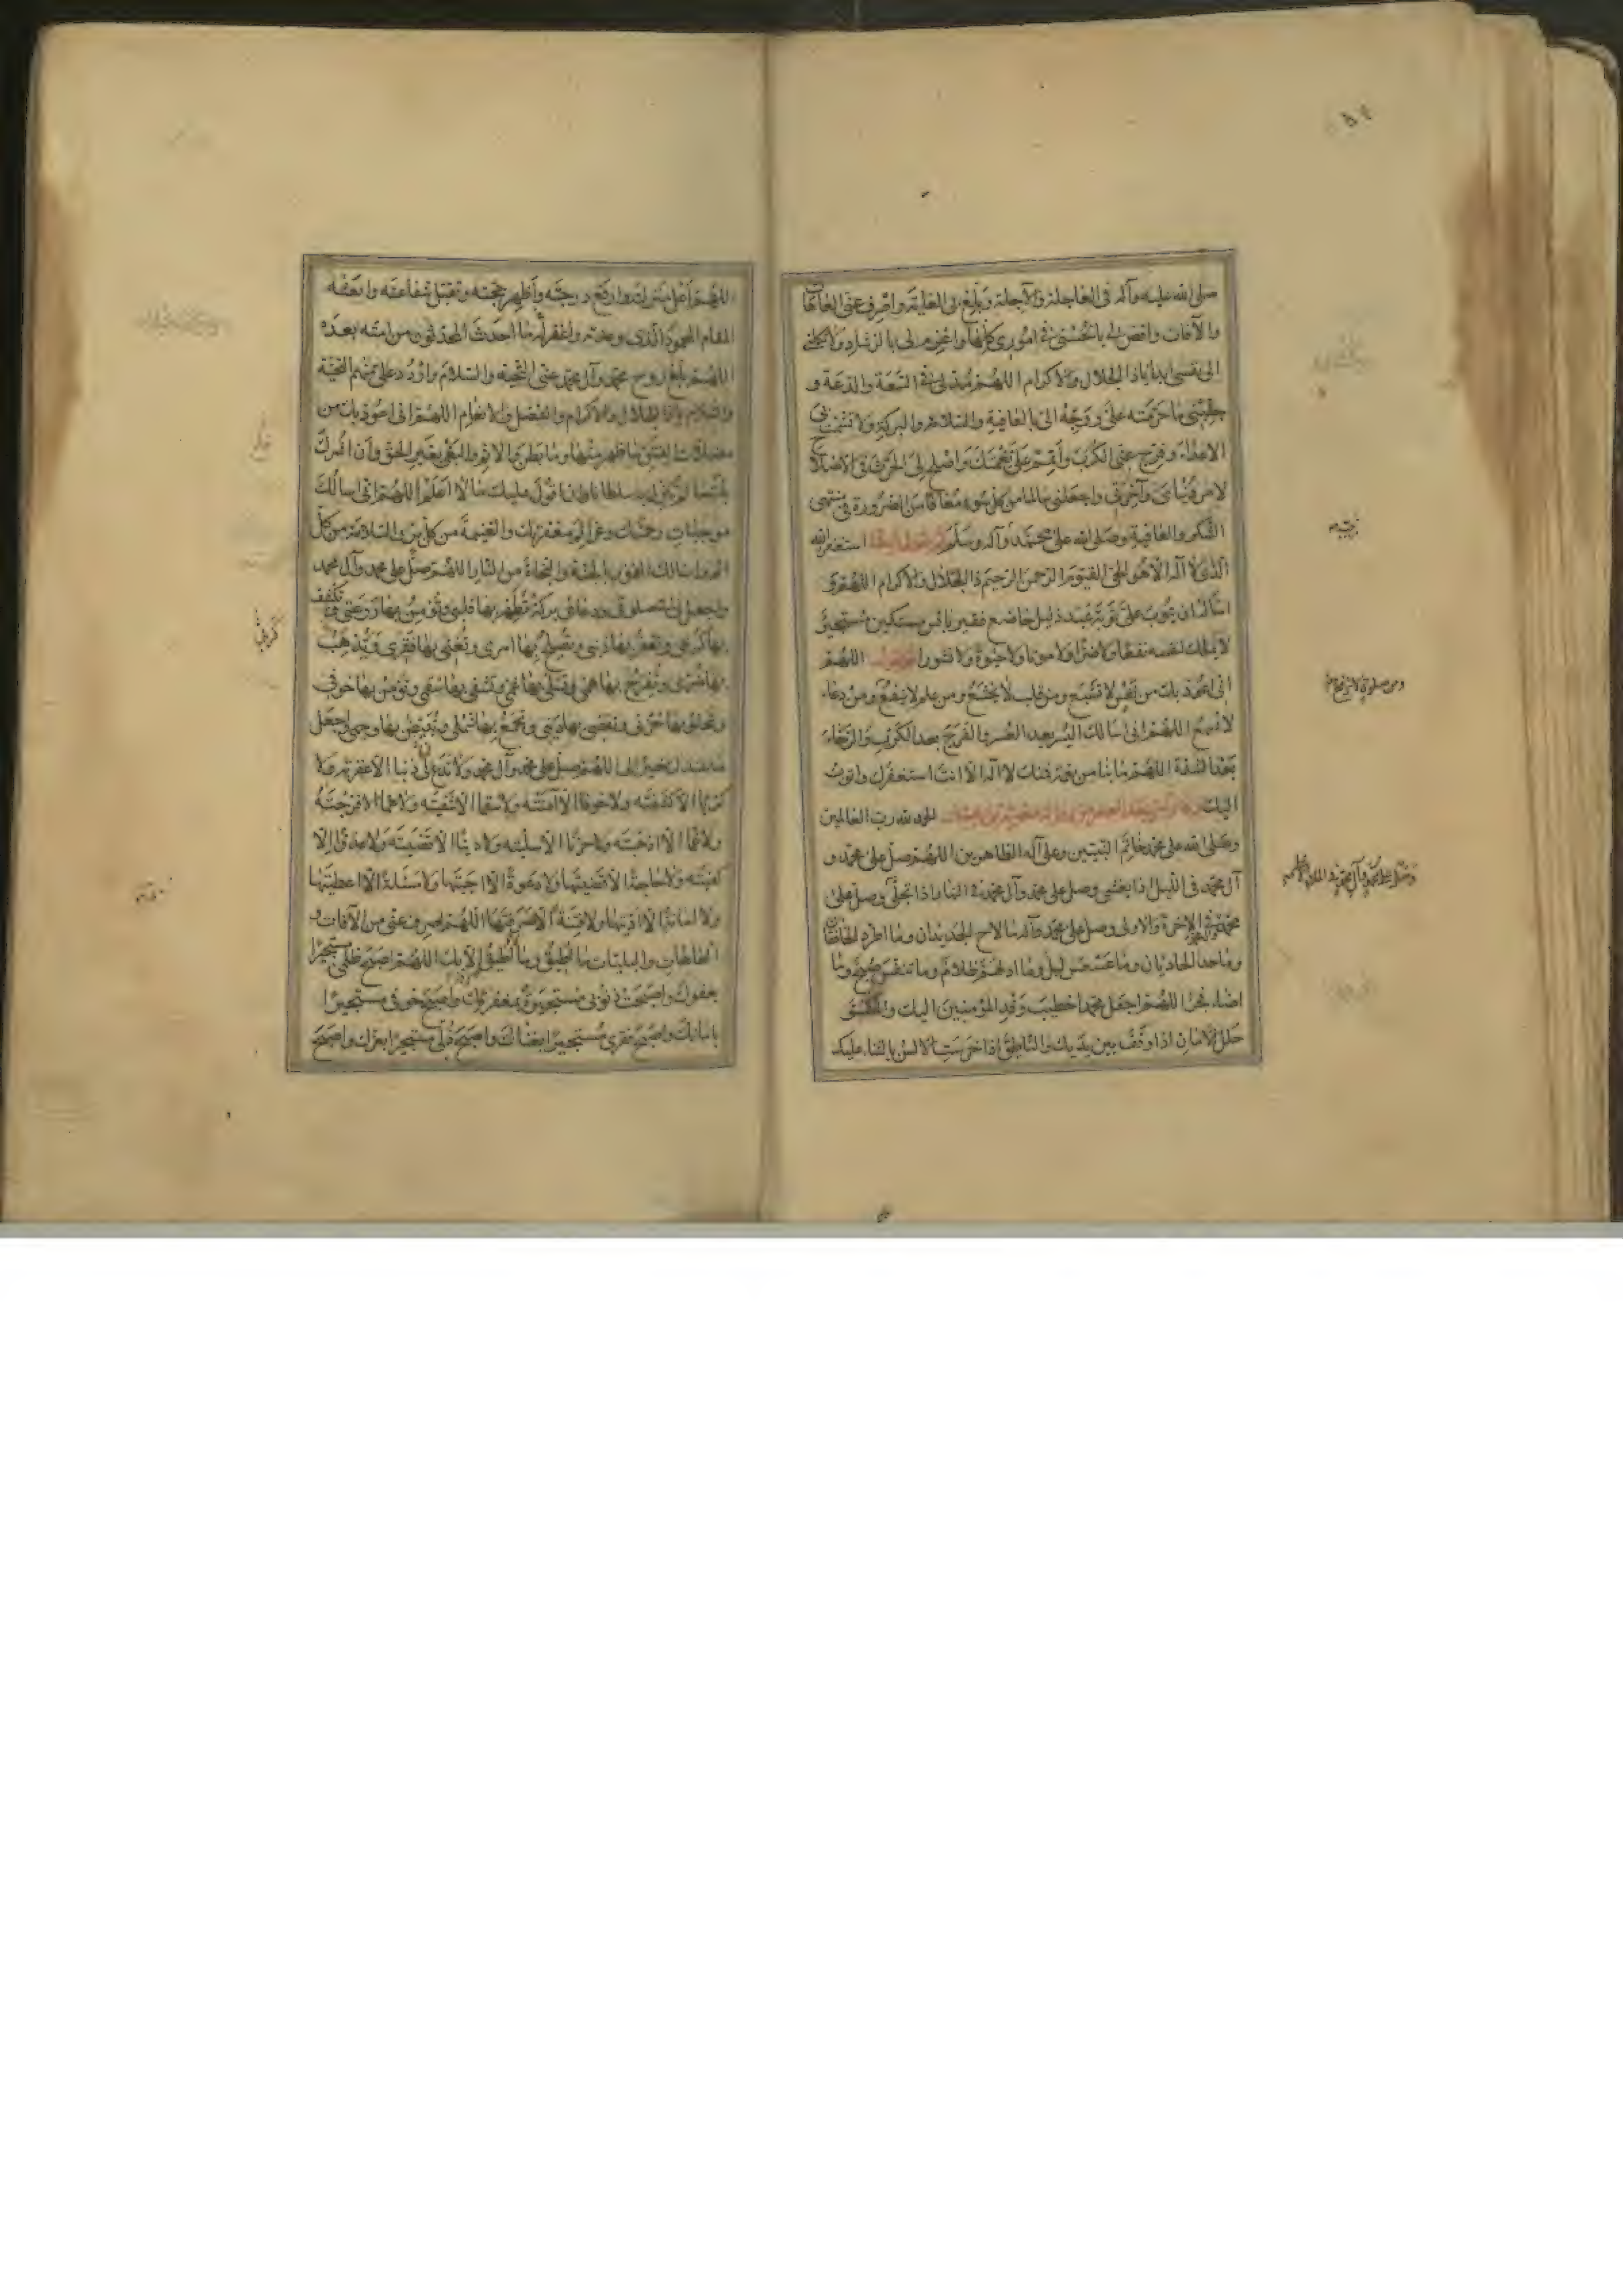 صلى الله عليه وآله في العاجلة والآجلة وبلغ بي الغاية واصرف عني العاهات
والآفات واقض لي بالحسنى في اموري كلها واعزم لي بالرشاد ولا تكلني
الى نفسي ابدا ياذا الجلال والاكرام اللهم مد لي في السعة والدعة و
جنبني ما حرمته علي ووجه الي بالعافية والسلامة والبركة ولا تشمت بي
الاعداء وفرج عني الكرب واتمم علي نعمتك واصلح لي الحرث في الاصلاح
لامر دنياي وآخرتي واجعلني سالما من كل سوء معافا من الضرورة في منتهى
الشكر والعافية وصلى الله على محمد وآله وسلم استغفر الله
الذي لا اله الا هو الحي القيوم الرحمن الرحيم ذا الجلال والاكرام
اسأله ان يتوب علي توبة عبد ذليل خاضع فقير بائس مستكين مستجير
لا يملك لنفسه نفعا ولا ضرا ولا موتا ولا حيوة ولا نشورا اللهم
اني اعوذ بك من نفس لا تشبع ومن قلب لا يخشع ومن علم لا ينفع ومن دعاء
لا يسمع اللهم اني اسالك اليسر بعد العسر والفرج بعد الكرب والرخاء
بعد الشدة اللهم ما بنا من نعمة فمنك لا اله الا انت استغفرك واتوب
اليك الحمد لله رب العالمين
وصلى الله على محمد خاتم النبيين وعلى آله الطاهرين اللهم صل على محمد و
آل محمد في الليل اذا يغشى وصل على محمد وآل محمد في النهار اذا تجلى وصل على
محمد في الاخرة والاولى وصل على محمد وآله ما لاح الجديدان وما اطرد الخافقان
وما حدا الحاديان وما عسعس ليل وما ادلهم ظلام وما تنفس صبح وما
اضاء فجر اللهم اجعل محمدا خطيب وفد المؤمنين اليك والمكسو
حلل الامان اذا وقف بين يديك والناطق اذا خرست الالسن بالثناء عليك
اللهم اعل منزلته وارفع درجته واظهر حجته وتقبل شفاعته وابعثه
المقام المحمود الذي وعدته واغفر له ما احدث المحدثون من امته بعده
اللهم بلغ روح محمد وآل محمد عني التحية والسلام واردد علي منهم التحية
والسلام ياذا الجلال والاكرام والفضل والانعام اللهم اني اعوذ بك من
مضلات الفتن ما ظهر منها وما بطن والاثم والبغي بغير الحق وان اشرك
بك ما لم تنزل به سلطانا او ان اقول عليك ما لا اعلم اللهم اني اسالك
موجبات رحمتك وعزائم مغفرتك والغنيمة من كل بر والسلامة من كل
اثم واسالك الفوز بالجنة والنجاة من النار اللهم صل على محمد وآل محمد
واجعل لي في صلوتي ودعائي بركة تطهر بها قلبي وتؤمن بها روعتي وتكشف
بها كربي وتغفر بها ذنبي وتصلح بها امري وتغني بها فقري وتذهب
بها ضري وتفرج بها همي وتسلي بها غمي وتشفي بها سقمي وتؤمن بها خوفي
وتجلو بها حزني وتقضي بها ديني وتجمع بها شملي وتبيض بها وجهي واجعل
ما عندك خيرا لي اللهم صل على محمد وآل محمد ولا تدع لي ذنبا الا غفرته ولا
كربا الا كشفته ولا خوفا الا آمنته ولا سقما الا شفيته ولا هما الا فرجته
ولا غما الا اذهبته ولا حزنا الا سليته ولا دينا الا قضيته ولا عدوا الا
كفيته ولا حاجة الا قضيتها ولا دعوة الا اجبتها ولا مسئلة الا اعطيتها
ولا امانة الا اديتها ولا فتنة الا صرفتها اللهم اصرف عني من الآفات و
العاهات والبليات ما اطيق وما لا اطيق الا بك اللهم اصبح ظلمي مستجيرا
بعفوك واصبحت ذنوبي مستجيرة بمغفرتك واصبح خوفي مستجيرا
بامانك واصبح فقري مستجيرا بغناك واصبح ذلي مستجيرا بعزك واصبح